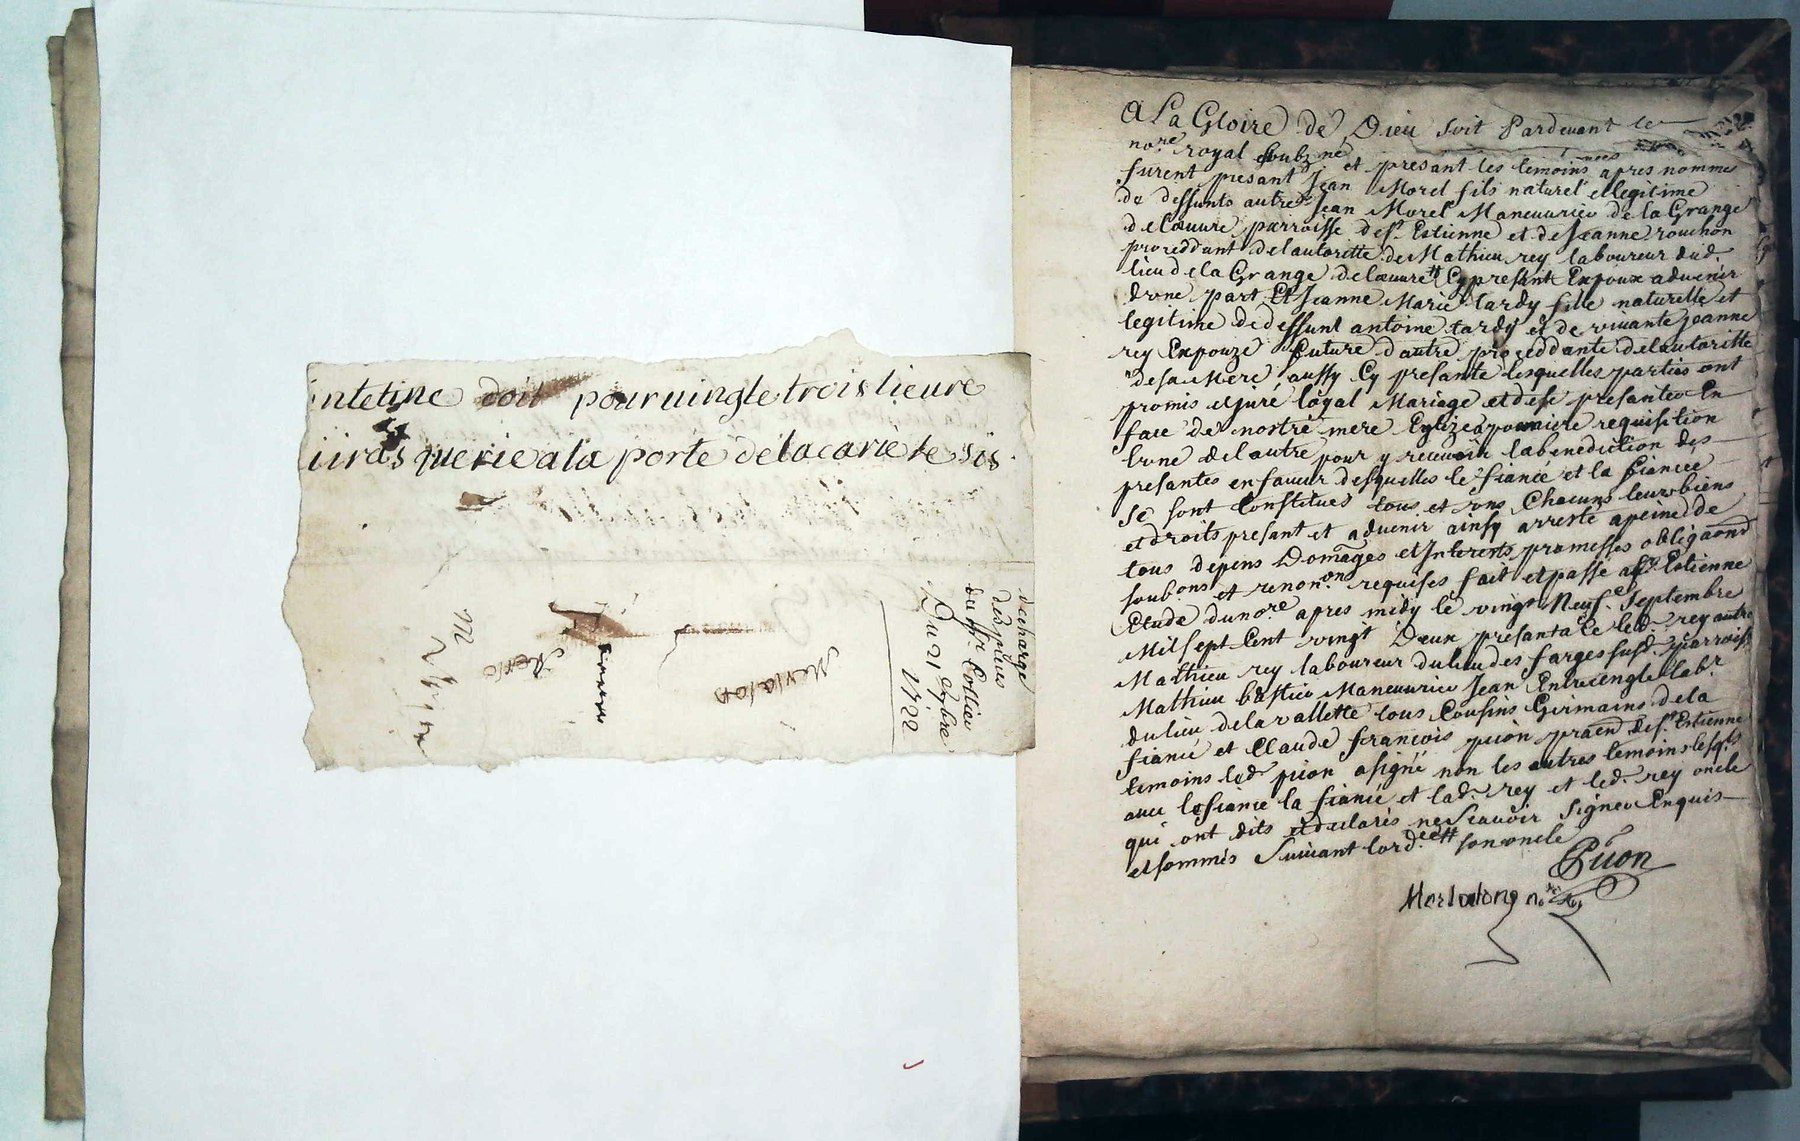 intetine doit pour uingt e trois lieure
querie a la porte de la carie te sis
decharge
des pures
du Sr Collieu
Du 21 9bre
1722
Merlaton
A La Gloire de Dieu soit Pardeuant le
nore royal soubzné et presant les temoins apres nommes
furent presant Jean Morel fils naturel et legitime
de deffunts autre Jean Morel Maneuurier de la Grange
de Lœuure parroisse de St Estienne et de Jeanne rouchon
proceddant de lautoritte de Mathieu rey laboureur dud.
lieu de la Grange de Lœuure Cy presant Expoux aduenir
dune part Et Jeanne Marie tardy fille naturelle et
legitime de deffunt antoine tardy et de viuante jeanne
rey Expouze future dautre proceddante de lautoritte
de sa Mere aussy Cy presante lesquelles parties ont
promis et juré loyal Mariage et de se presanter En
face de nostre mere Eglize a premiere requisition
lune de lautre pour y receuoir la benediction des
presantes en faueur desquelles le fiancé et la fiancée
se sont Constitues tous et vns Chacuns leurs biens
et droits presant et aduenir ainsy arresté a peine de
tous depens Domages et Interests promesses obligaons
soubons et renonons requises fait et passé a St Estienne
Etude du nore apres midy le vingt Neufe Septembre
Mil sept Cent vingt Deux presant a ce led. rey autre
Mathieu rey laboureur du lieu des farges susd. parroisse
Mathieu bastier Maneuurier Jean Entressengle labr
du lieu de la vallette tous Cousins Germains de la
fiancé et Claude françois pijon praen de St Estienne
temoins led. pijon a signé non les autres temoins lesqls
auec le fiancé la fiancé et lad. rey et led. rey oncle
qui ont dits et declarés ne Scauoir Signer Enquis
et sommés Suiuant lord. son oncle
Pijon
Merlaton nore Roy